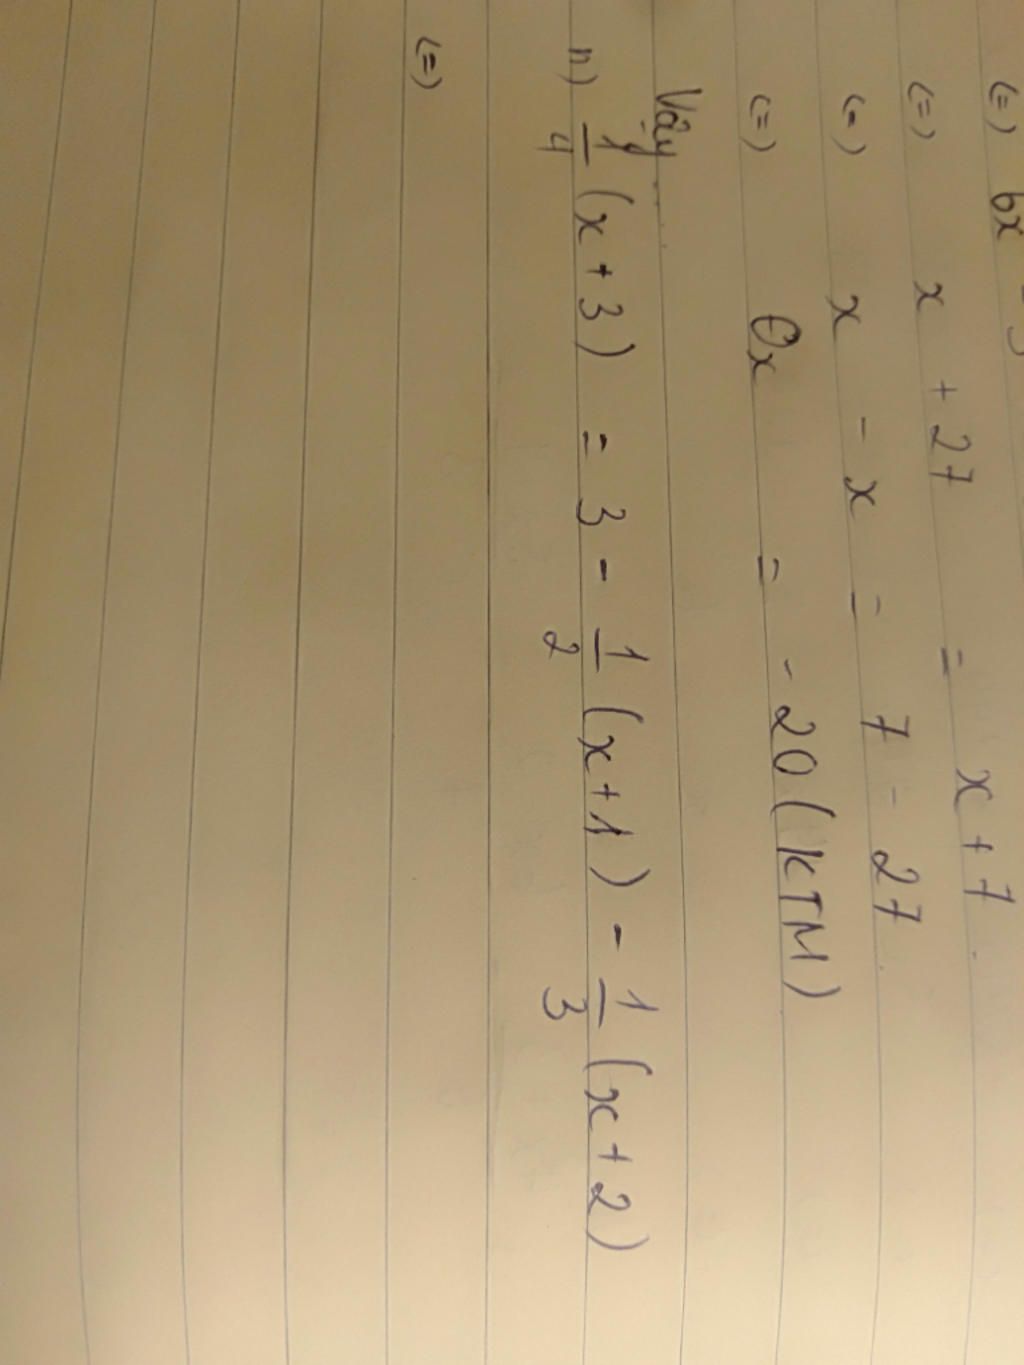 (=) 6x -
(=) x + 27 = x + 7
(=) x - x = 7 - 27
(=) 0x = - 20 (KTM)
Vậy ...
n) 1/4 (x + 3) = 3 - 1/2 (x + 1) - 1/3 (x + 2)
(=)